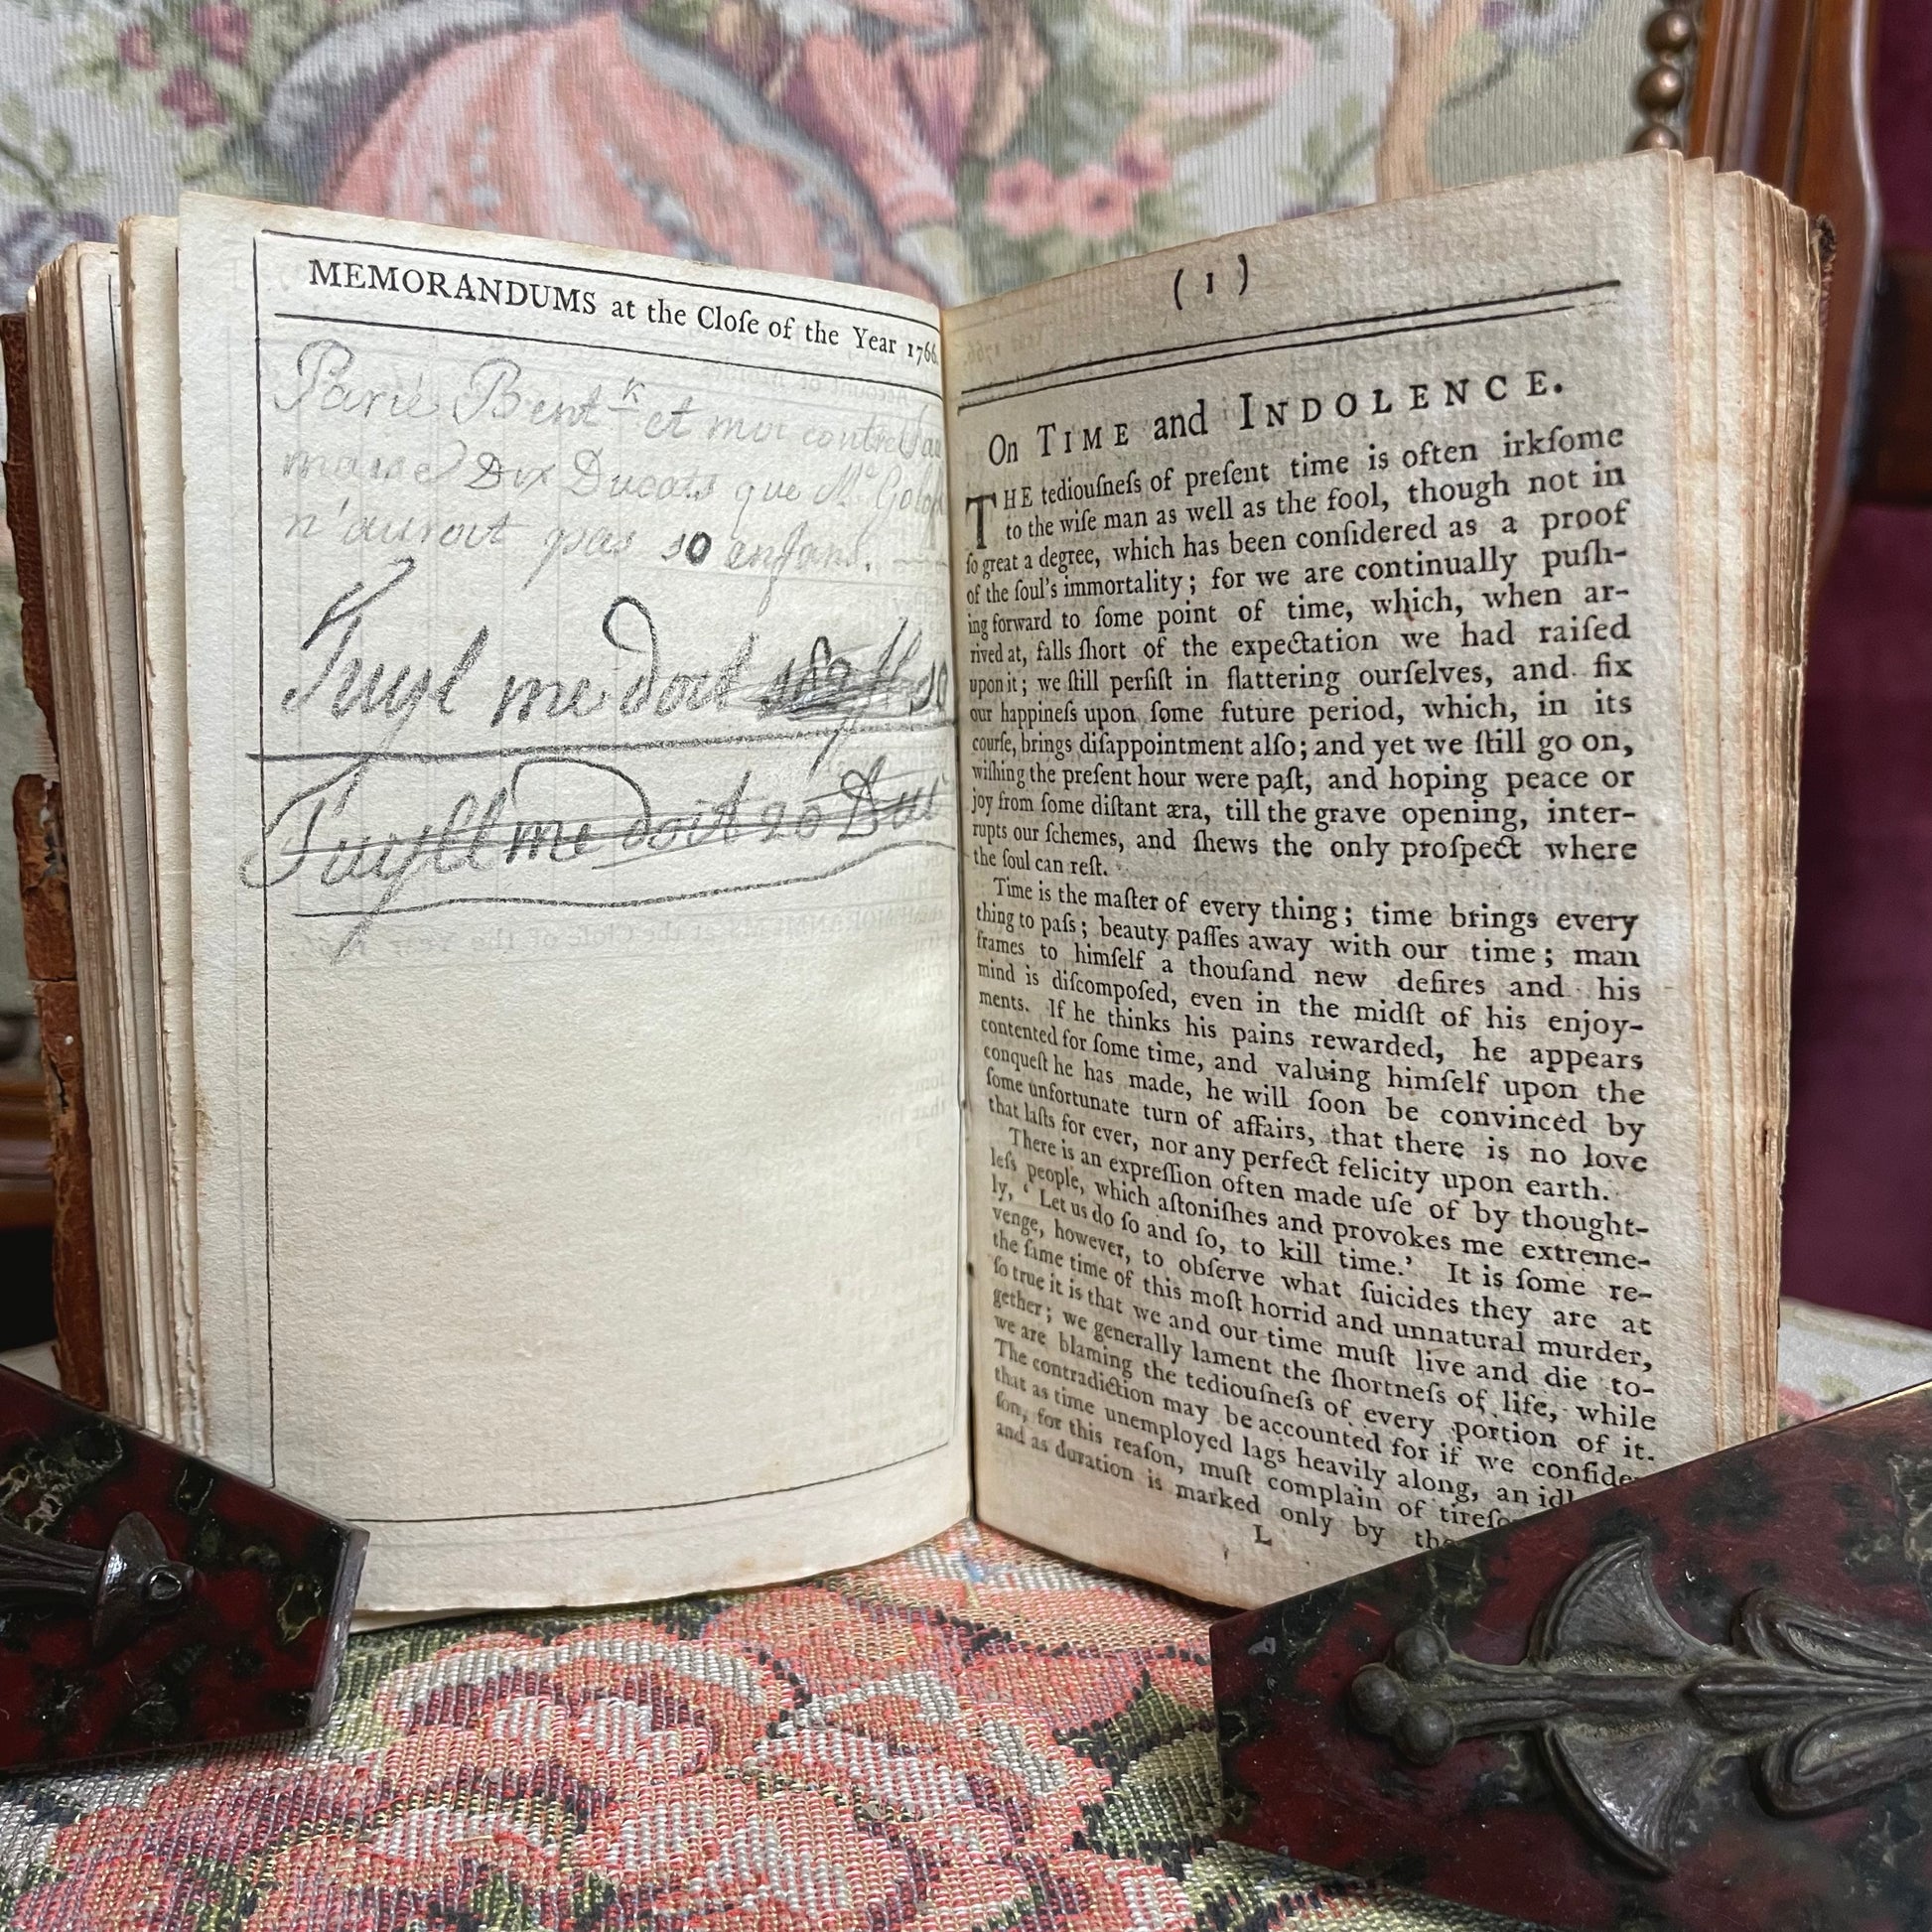 MEMORANDUMS at the Cloſe of the Year 1766.
Parié Bent.k et moi contre
Dix Ducats que Mr.
n'auroit pas 10 enfans.
Tuyl me doit
Tuyll me doit 20 Duc
( 1 )
On TIME and INDOLENCE.
THE tediouſneſs of preſent time is often irkſome
to the wiſe man as well as the fool, though not in
ſo great a degree, which has been conſidered as a proof
of the ſoul's immortality; for we are continually puſh-
ing forward to ſome point of time, which, when ar-
rived at, falls ſhort of the expectation we had raiſed
upon it; we ſtill perſiſt in flattering ourſelves, and fix
our happineſs upon ſome future period, which, in its
courſe, brings diſappointment alſo; and yet we ſtill go on,
wiſhing the preſent hour were paſt, and hoping peace or
joy from ſome diſtant æra, till the grave opening, inter-
rupts our ſchemes, and ſhews the only proſpect where
the ſoul can reſt.
Time is the maſter of every thing; time brings every
thing to paſs; beauty paſſes away with our time; man
frames to himſelf a thouſand new deſires and his
mind is diſcompoſed, even in the midſt of his enjoy-
ments. If he thinks his pains rewarded, he appears
contented for ſome time, and valuing himſelf upon the
conqueſt he has made, he will ſoon be convinced by
ſome unfortunate turn of affairs, that there is no love
that laſts for ever, nor any perfect felicity upon earth.
There is an expreſſion often made uſe of by thought-
leſs people, which aſtoniſhes and provokes me extreme-
ly, ‘ Let us do ſo and ſo, to kill time.’ It is ſome re-
venge, however, to obſerve what ſuicides they are at
the ſame time of this moſt horrid and unnatural murder,
ſo true it is that we and our time muſt live and die to-
gether; we generally lament the ſhortneſs of life, while
we are blaming the tediouſneſs of every portion of it.
The contradiction may be accounted for if we conſider
that as time unemployed lags heavily along, an idl
ſon, for this reaſon, muſt complain of tireſo
and as duration is marked only by the
L